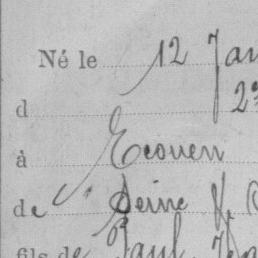 Né le 12 Jan
d
à Ecouen
de Seine &
fils de Paul